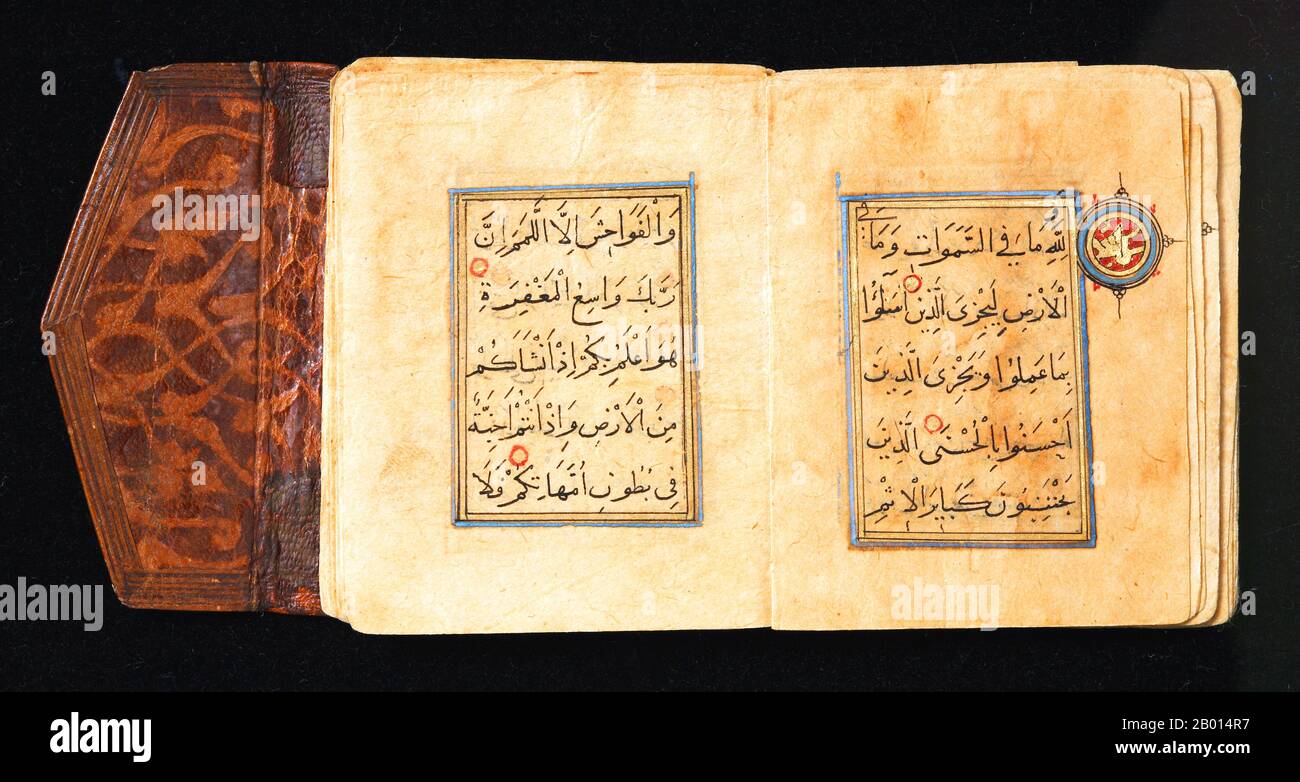 وَلِلَّهِ مَا فِي السَّمَوَاتِ وَمَا فِي
الْأَرْضِ لِيَجْزِىَ الَّذِينَ أَسَاؤُا
بِمَا عَمِلُوا وَيَجْزِىَ الَّذِينَ
اَحْسَنُوا بِالْحُسْنَى الَّذِينَ
يَجْتَنِبُونَ كَبَايِرَ الْاِثْمِ
وَالْفَوَاحِشَ اِلَّا اللَّمَمَ اِنَّ
رَبَّكَ وَاسِعُ الْمَغْفِرَةِ
هُوَ اَعْلَمُ بِكُمْ اِذْ اَنْشَاَكُمْ
مِنَ الْاَرْضِ وَاِذْ اَنْتُمْ اَجِنَّةٌ
فِى بُطُونِ اُمَّهَاتِكُمْ فَلَا
alamy
Image ID: 2B014R7
www.alamy.com